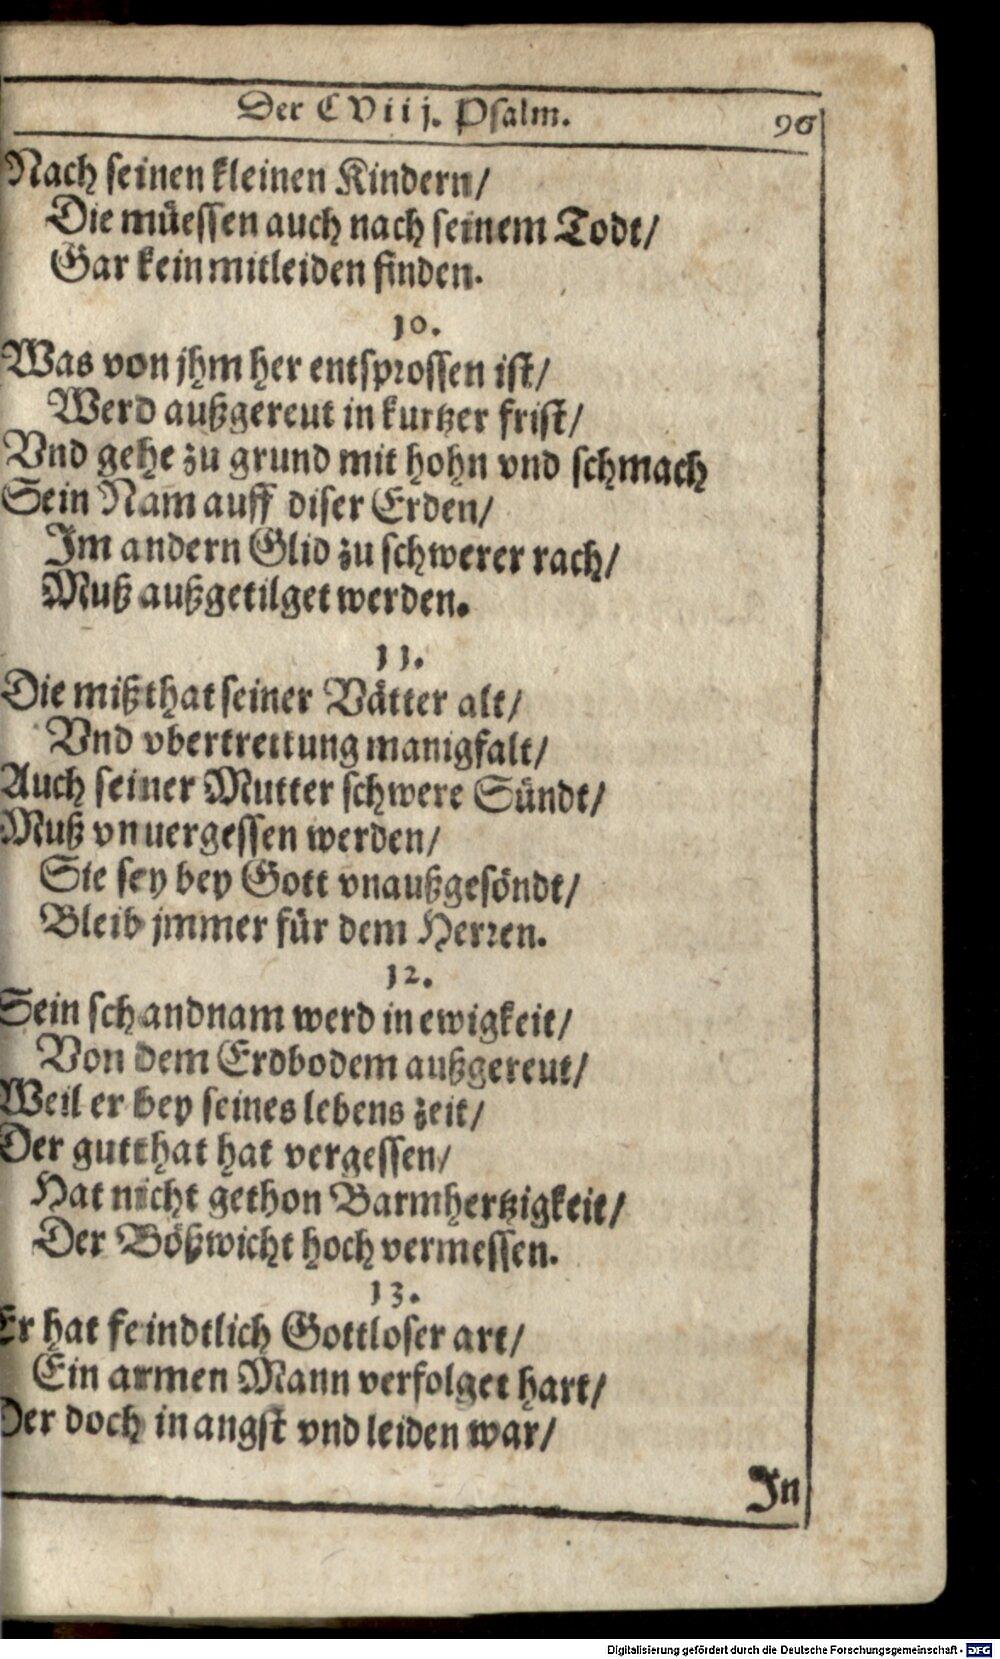 Der CViij. Psalm. 96
Nach seinen kleinen Kindern/
Die müessen auch nach seinem Todt/
Gar kein mitleiden finden.
10.
Was von jhm her entsprossen ist/
Werd außgereut in kurtzer frist/
Vnd gehe zu grund mit hohn vnd schmach
Sein Nam auff diser Erden/
Im andern Glid zu schwerer rach/
Muß außgetilget werden.
11.
Die mißthat seiner Vätter alt/
Vnd vbertrettung manigfalt/
Auch seiner Mutter schwere Sündt/
Muß vnuergessen werden/
Sie sey bey Gott vnaußgesöndt/
Bleib jmmer für dem Herren.
12.
Sein schandnam werd in ewigkeit/
Von dem Erdbodem außgereut/
Weil er bey seines lebens zeit/
Der gutthat hat vergessen/
Hat nicht gethon Barmhertzigkeit/
Der Bößwicht hoch vermessen.
13.
Er hat feindtlich Gottloser art/
Ein armen Mann verfolget hart/
Der doch in angst vnd leiden war/
In
Digitalisierung gefördert durch die Deutsche Forschungsgemeinschaft - DFG